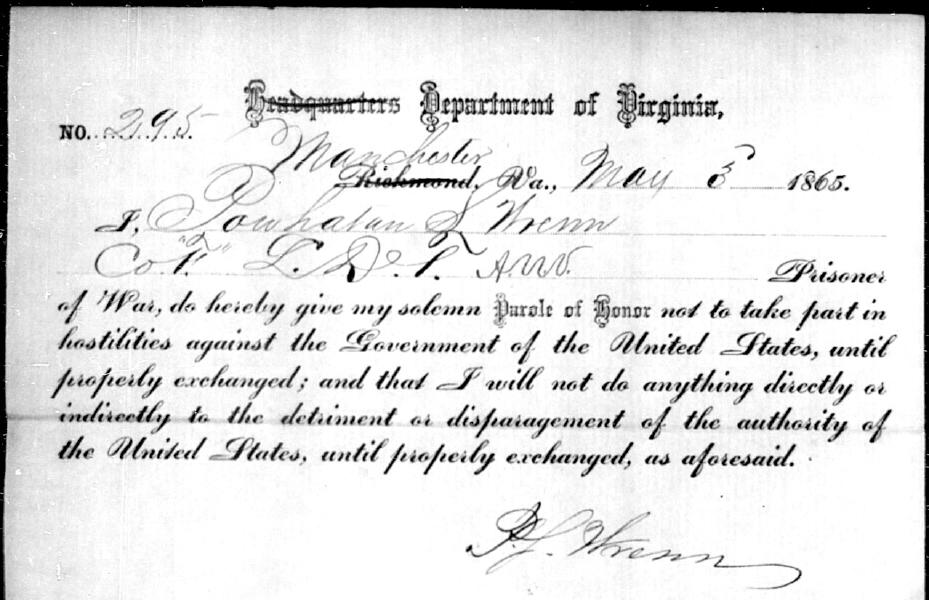 Headquarters Department of Virginia,
NO. 295
Manchester
Richmond, Va., May 3 1865.
I, Powhatan S Wrenn
Co. L. D. T. Prisoner
of War, do hereby give my solemn Parole of Honor not to take part in
hostilities against the Government of the United States, until
properly exchanged; and that I will not do anything directly or
indirectly to the detriment or disparagement of the authority of
the United States, until properly exchanged, as aforesaid.
P. S. Wrenn